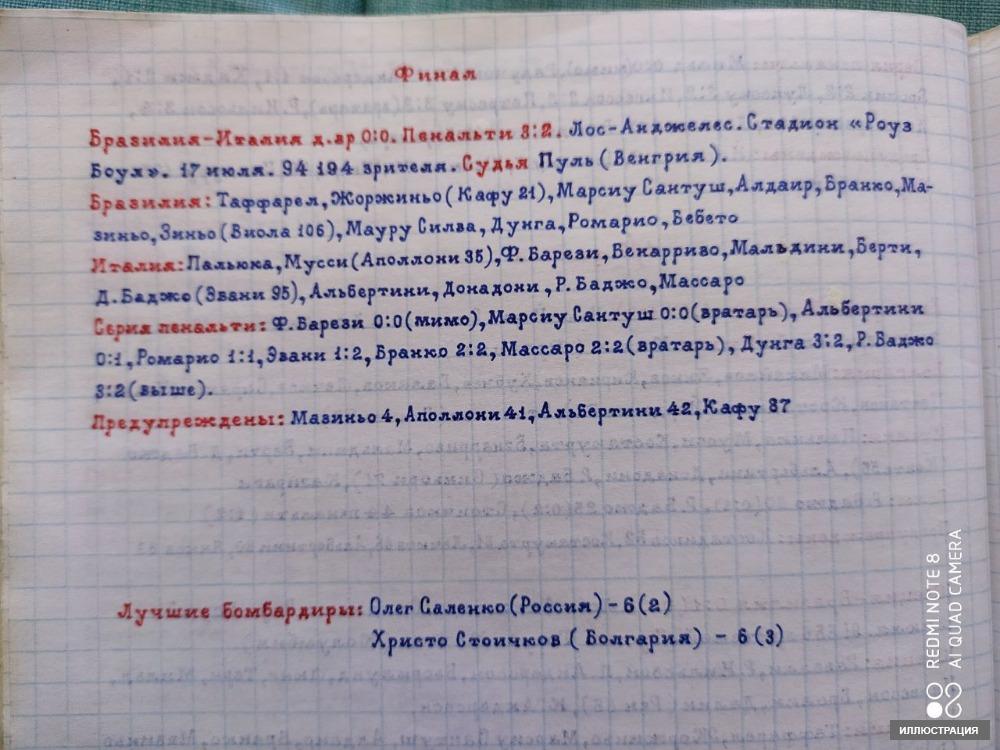 Финал
Бразилия-Италия д.вр 0:0. Пенальти 3:2. Лос-Анджелес. Стадион «Роуз
Боул». 17 июля. 94 194 зрителя. Судья Пуль (Венгрия).
Бразилия: Таффарел, Жоржиньо (Кафу 21), Марсиу Сантуш, Алдаир, Бранко, Ма-
зиньо, Зиньо (Виола 106), Мауру Силва, Дунга, Ромарио, Бебето
Италия: Пальюка, Мусси (Аполлони 35), Ф. Барези, Бенарриво, Мальдини, Берти,
Д. Баджо (Эвани 95), Альбертини, Донадони, Р. Баджо, Массаро
Серия пенальти: Ф. Барези 0:0 (мимо), Марсиу Сантуш 0:0 (вратарь), Альбертини
0:1, Ромарио 1:1, Эвани 1:2, Бранко 2:2, Массаро 2:2 (вратарь), Дунга 3:2, Р. Баджо
3:2 (выше).
Предупреждены: Мазиньо 4, Аполлони 41, Альбертини 42, Кафу 87
Лучшие бомбардиры: Олег Саленко (Россия) - 6 (2)
Христо Стоичков (Болгария) - 6 (3)
REDMI NOTE 8
AI QUAD CAMERA
ИЛЛЮСТРАЦИЯ